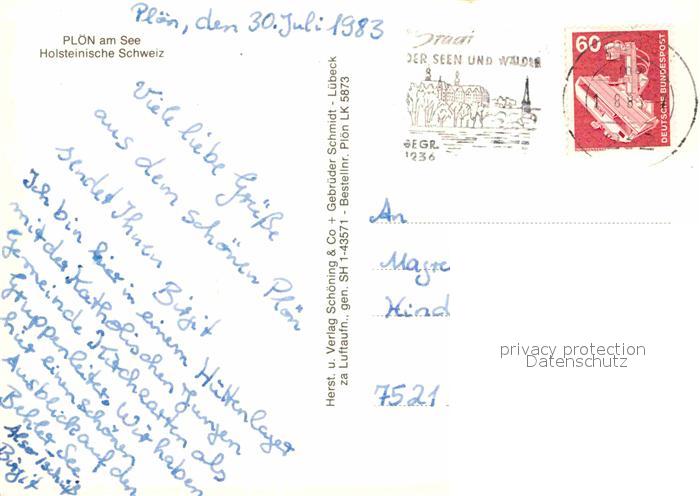 Plön, den 30. Juli 1983
PLÖN am See
Holsteinische Schweiz
Viele liebe Grüße
aus dem schönen Plön
sendet Ihnen Birgit
Ich bin hier in einem Hüttenlager
mit der Katholischen Jungen
Gemeinde Kirchgarten als
Gruppenleiter. Wir haben
hier einen schönen
Ausblick auf den
Behler See
Also Tschüß
Birgit
Herst. u. Verlag Schöning & Co + Gebrüder Schmidt - Lübeck
za Luftaufn., gen. SH 1-43571 - Bestellnr. Plön LK 5873
DER SEEN UND WÄLDER
GEGR.
1236
60
DEUTSCHE BUNDESPOST
An
Hind
7521
privacy protection
Datenschutz